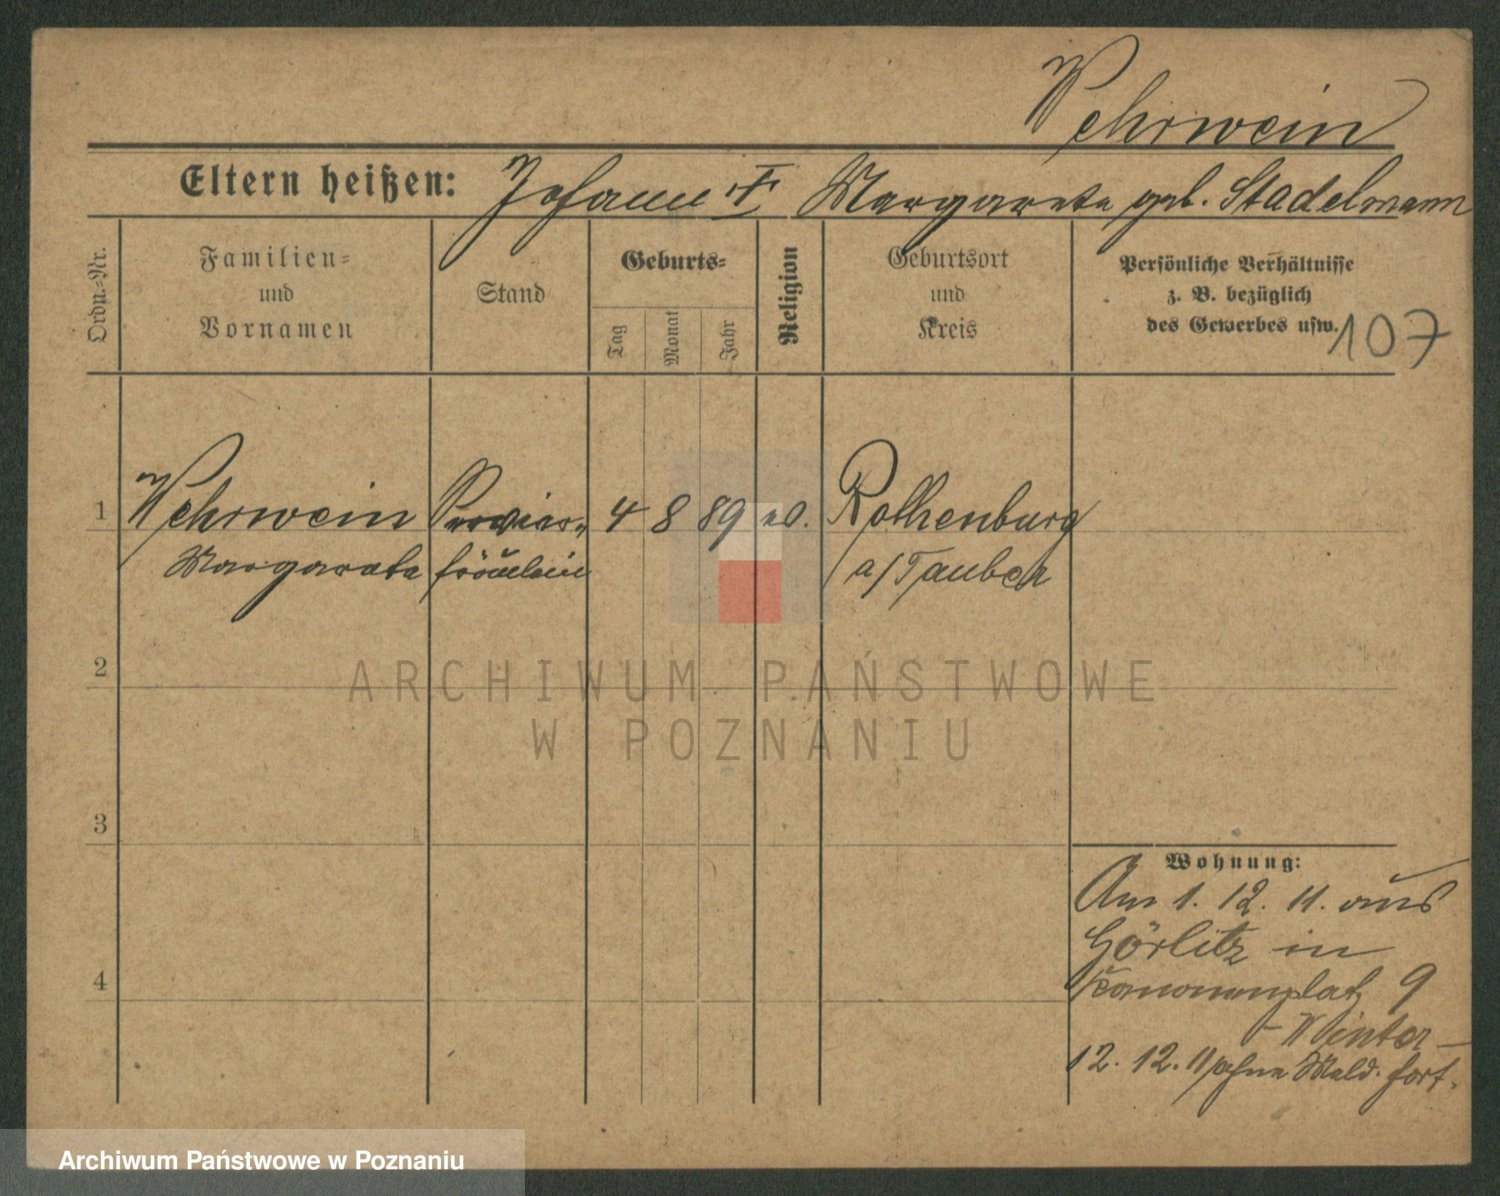 Wehrwein
Eltern heißen: Johann † Margareta geb. Stadelmann
Ordn.-Nr.
Familien-
und
Vornamen
Stand
Geburts-
Tag
Monat
Jahr
Religion
Geburtsort
und
Kreis
Persönliche Verhältnisse
z. B. bezüglich
des Gewerbes usw.
107
1 Wehrwein 4 8 89 Rothenburg
Margareta fräulein a/Tauber
2
ARCHIWUM PAŃSTWOWE
W POZNANIU
3
Wohnung:
Am 1. 12. 11. aus
Görlitz in
4
Kanonenplatz 9
- Winter -
12. 12. 11 ohne Meld. fort.
Archiwum Państwowe w Poznaniu